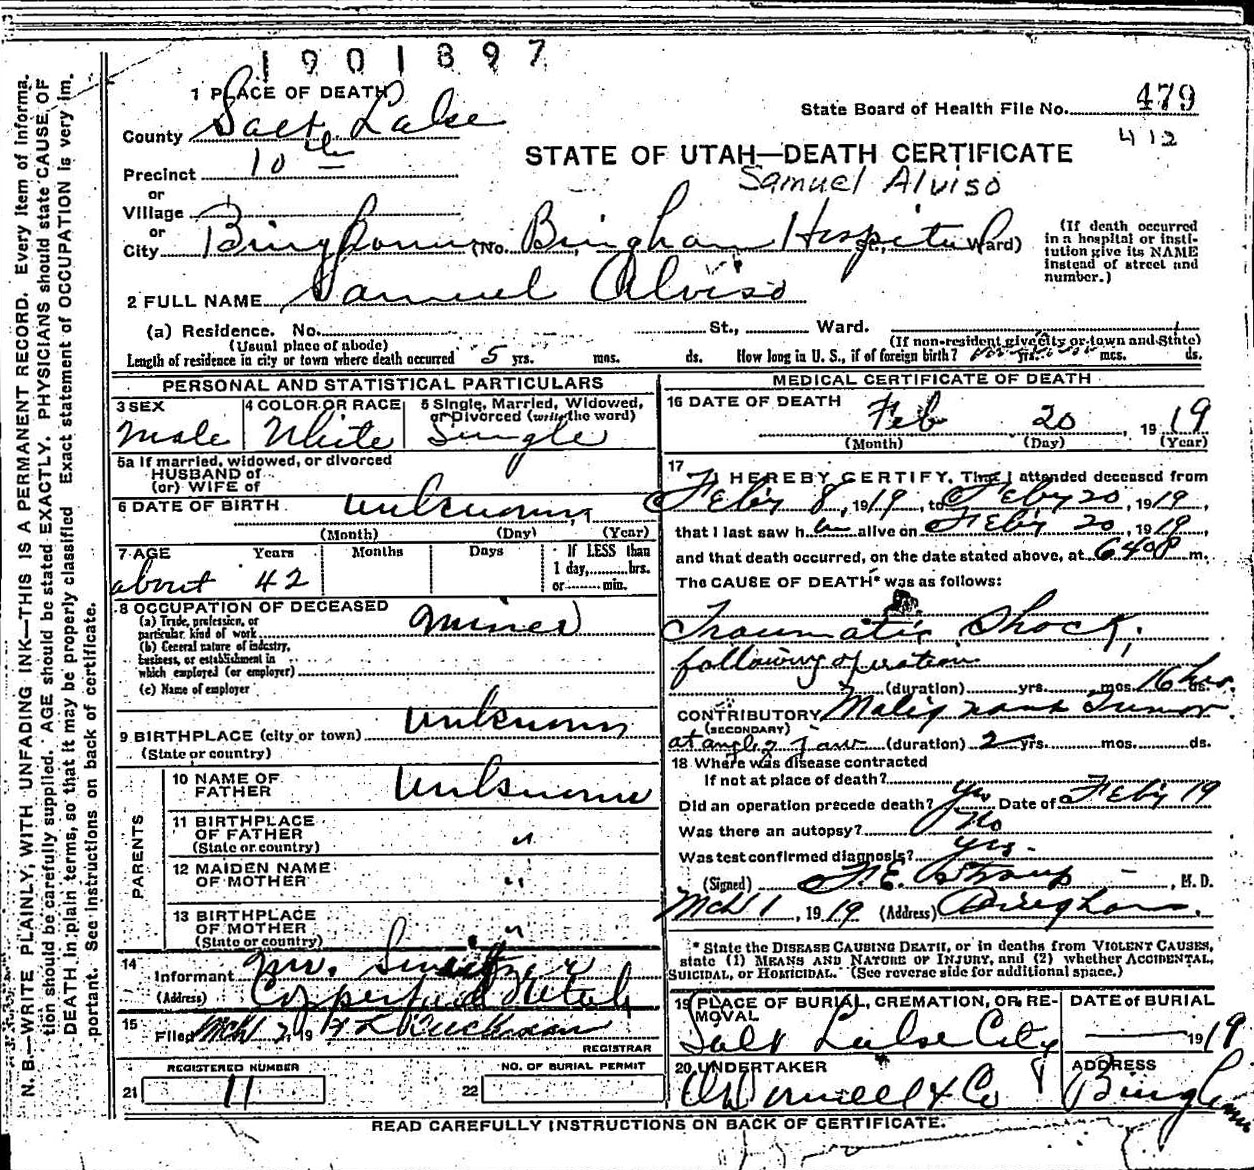 1901897
1 PLACE OF DEATH
State Board of Health File No. 479
County Salt Lake
412
Precinct 10th
STATE OF UTAH—DEATH CERTIFICATE
Samuel Alviso
or
Village
or
City Bingham (No. Bingham Hospital St., Ward)
(If death occurred in a hospital or insti-
tution give its NAME
instead of street and
number.)
2 FULL NAME Samuel Alviso
(a) Residence. No. St., Ward.
(Usual place of abode) (If non-resident give city or town and State)
Length of residence in city or town where death occurred 5 yrs. mos. ds. How long in U. S., if of foreign birth? yrs. mos. ds.
PERSONAL AND STATISTICAL PARTICULARS
3 SEX Male
4 COLOR OR RACE White
5 Single, Married, Widowed,
or Divorced (write the word)
Single
5a If married, widowed, or divorced
HUSBAND of
(or) WIFE of
6 DATE OF BIRTH unknown
(Month) (Day) (Year)
7 AGE Years Months Days If LESS than
1 day, hrs.
or min.
about 42
8 OCCUPATION OF DECEASED
(a) Trade, profession, or
particular kind of work miner
(b) General nature of industry,
business, or establishment in
which employed (or employer)
(c) Name of employer
9 BIRTHPLACE (city or town) unknown
(State or country)
PARENTS
10 NAME OF
FATHER unknown
11 BIRTHPLACE
OF FATHER "
(State or country)
12 MAIDEN NAME
OF MOTHER "
13 BIRTHPLACE
OF MOTHER "
(State or country)
14
Informant Mr.
(Address) Copperfield Utah
15
Filed Mch 2, 19 Buckman
REGISTRAR
REGISTERED NUMBER
21 11
NO. OF BURIAL PERMIT
22
MEDICAL CERTIFICATE OF DEATH
16 DATE OF DEATH
Feb 20, 1919
(Month) (Day) (Year)
17
I HEREBY CERTIFY, That I attended deceased from
Feby 8, 1919, to Feby 20, 1919,
that I last saw him alive on Feby 20, 1919,
and that death occurred, on the date stated above, at 640P m.
The CAUSE OF DEATH* was as follows:
Traumatic Shock,
following operation
(duration) yrs. mos. 16 hrs. ds.
CONTRIBUTORY Malignant Tumor
(SECONDARY)
at angle of jaw (duration) 2 yrs. mos. ds.
18 Where was disease contracted
If not at place of death?
Did an operation precede death? yes Date of Feby 19
Was there an autopsy? No
Was test confirmed diagnosis? yes.
(Signed) F. E. Straup, M.D.
Mch 1, 1919 (Address) Bingham.
* State the DISEASE CAUSING DEATH, or in deaths from VIOLENT CAUSES,
state (1) MEANS AND NATURE OF INJURY, and (2) whether ACCIDENTAL,
SUICIDAL, or HOMICIDAL. (See reverse side for additional space.)
19 PLACE OF BURIAL, CREMATION, OR RE-
MOVAL
Salt Lake City
DATE of BURIAL
1919
20 UNDERTAKER
O'Donnell & Co
ADDRESS
Bingham
READ CAREFULLY INSTRUCTIONS ON BACK OF CERTIFICATE.
N. B.—WRITE PLAINLY, WITH UNFADING INK—THIS IS A PERMANENT RECORD. Every item of informa-
tion should be carefully supplied. AGE should be stated EXACTLY. PHYSICIANS should state CAUSE OF
DEATH in plain terms, so that it may be properly classified. Exact statement of OCCUPATION is very im-
portant. See instructions on back of certificate.